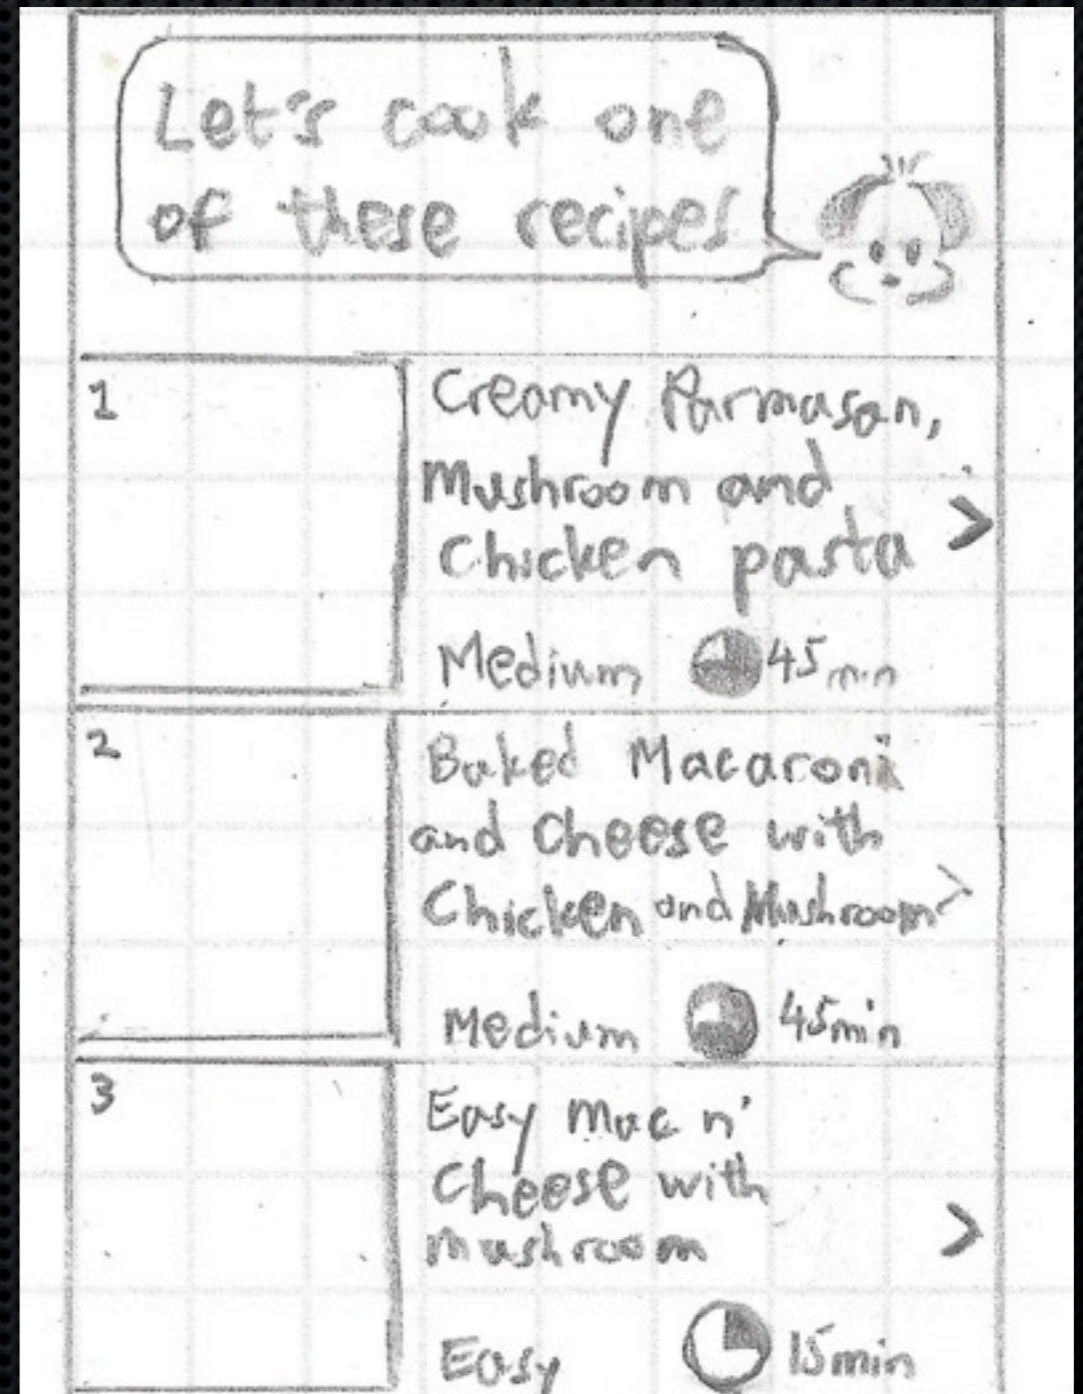 Let's cook one
of these recipes
1
Creamy Parmasan,
Mushroom and
Chicken pasta
>
Medium 45min
2
Baked Macaroni
and Cheese with
Chicken and Mushroom >
Medium 45min
3
Easy Mac n'
Cheese with
Mushroom
>
Easy 15min